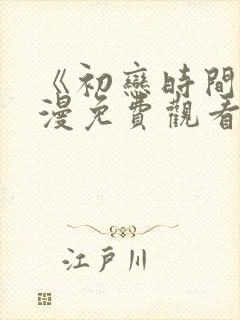 《初戀時間
漫免費觀看
江戶川